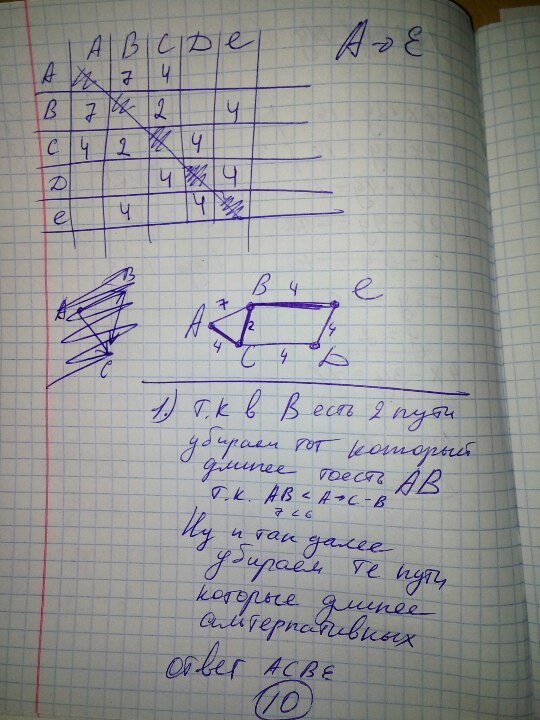 A → E
A B C D e
A 7 4
B 7 2 4
C 4 2 4
D 4 4
e 4 4
B
A
C
B 4 e
7
A 2 4
4
C 4 D
1.) т.к в B есть 2 пути
убираем тот который
длинее тоесть AB
т.к. AB < A→C-B
7 < 6
Ну и так далее
убираем те пути
которые длинее
альтернативных
ответ ACBE
10